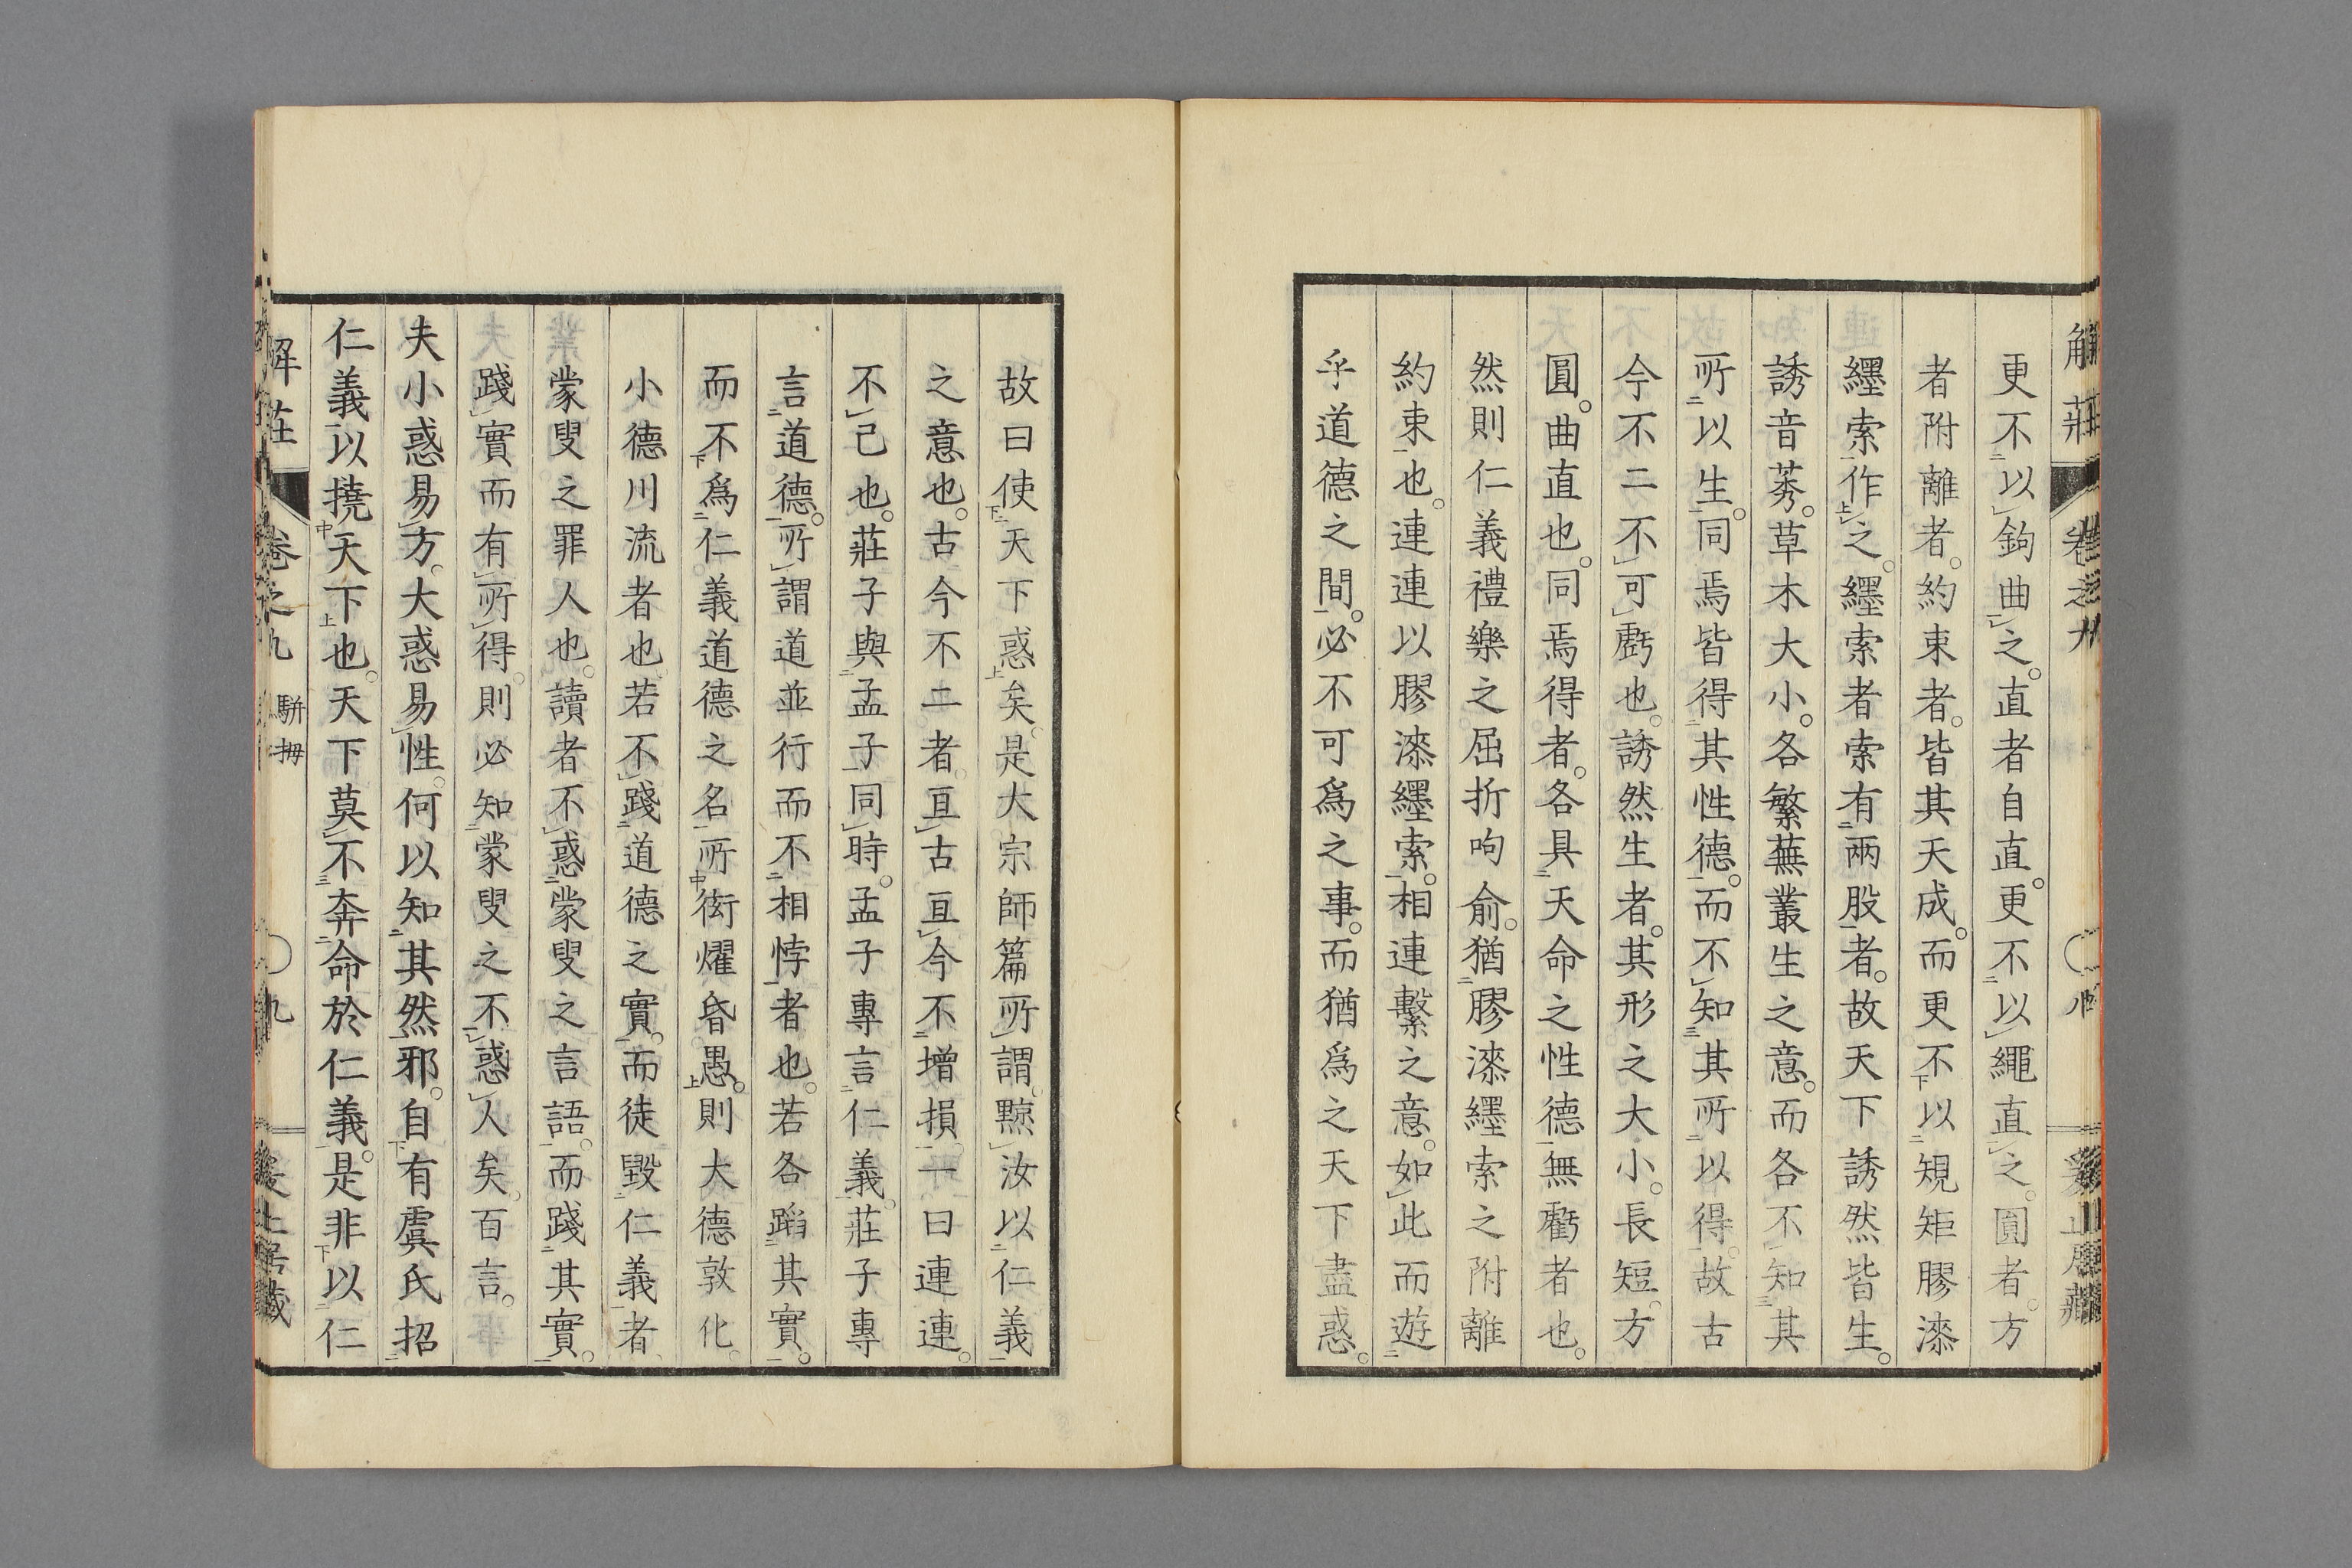 解莊
卷之九
更不以鉤曲之。直者自直。更不以繩直之。圓者。方
者附離者。約束者。皆其天成。而更不以規矩膠漆
纆索作之。纆索者索有兩股者。故天下誘然皆生。
誘音莠。草木大小。各繁蕪叢生之意。而各不知其
所以生。同焉皆得其性德。而不知其所以得。故古
今不二不可虧也。誘然生者。其形之大小。長短。方
圓。曲直也。同焉得者。各具天命之性德無虧者也。
然則仁義禮樂之屈折呴俞。猶膠漆纆索之附離
約束也。連連以膠漆纆索。相連繫之意。如此而遊
乎道德之間。必不可爲之事。而猶爲之天下盡惑。
故曰使天下惑矣。是大宗師篇所謂。黥汝以仁義
之意也。古今不二者。亙古亙今不增損一曰連連。
不已也。莊子與孟子同時。孟子專言仁義。莊子專
言道德。所謂道並行而不相悖者也。若各蹈其實。
而不爲仁義道德之名所衒燿昏愚。則大德敦化。
小德川流者也。若不踐道德之實。而徒毀仁義者、
蒙叟之罪人也。讀者不惑蒙叟之言語。而踐其實。
踐實而有所得。則必知蒙叟之不惑人矣。百言。
夫小惑易方。大惑易性。何以知其然邪。自有虞氏招
仁義以撓天下也。天下莫不奔命於仁義。是非以仁
解莊
卷之九
駢拇
九